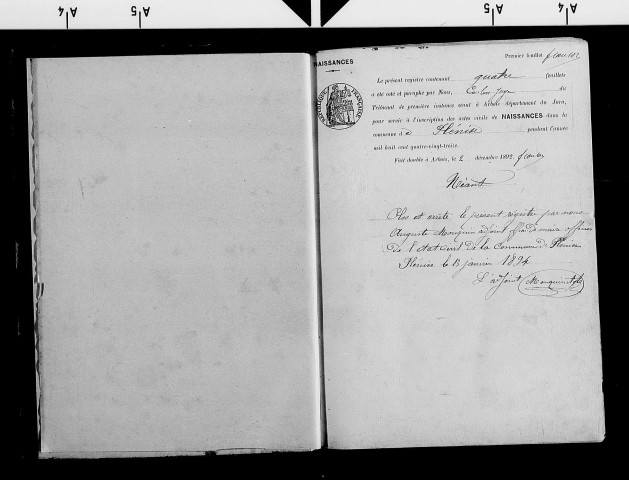 A 4
A 5
A 5
A 4
NAISSANCES
Premier feuillet
RÉPUBLIQUE FRANÇAISE
Le présent registre contenant quatre feuillets
a été coté et paraphé par Nous, juge du
Tribunal de première instance séant à Arbois département du Jura,
pour servir à l'inscription des actes civils de NAISSANCES dans la
commune d e Plénise pendant l'année
mil huit cent quatre-vingt-treize.
Fait double à Arbois, le 2 décembre 1892
Néant
Clos et arrêté le présent registre par nous
Auguste Monguin adjoint de maire officier
de l'état civil de la Commune de Plénise
Plénise le 13 janvier 1894
L'adjoint Monguin Ate